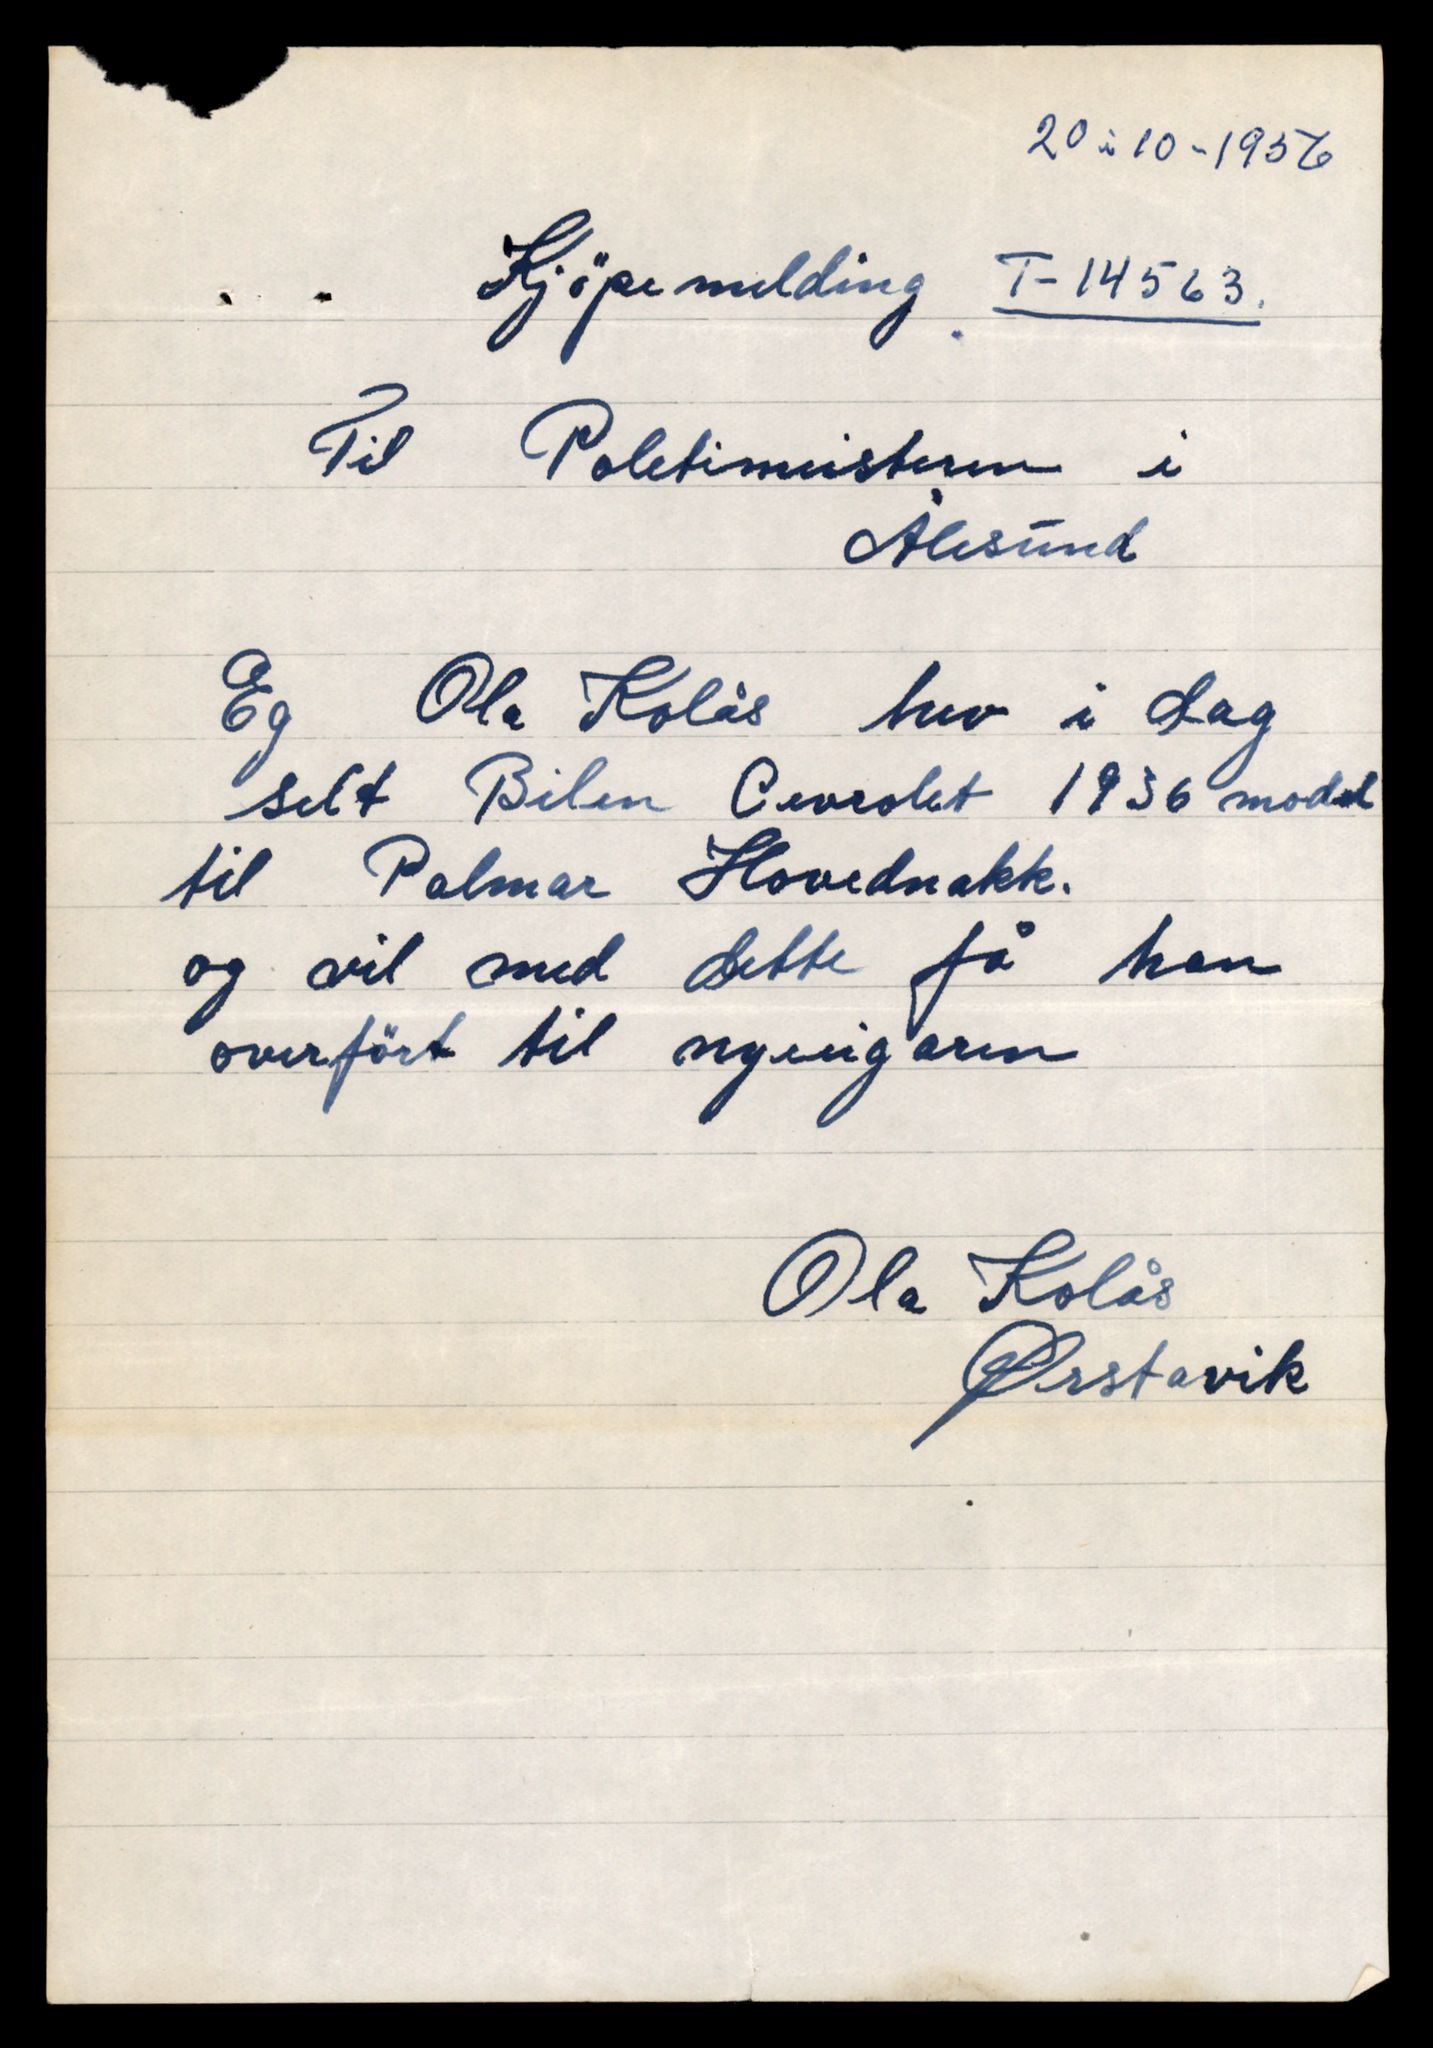 20 i 10 - 1956
Kjöpemelding T-14563.
Til Poletimeisteren i
Ålesund
Eg Ola Kolås hev i dag
selt Bilen Cevrolet 1936 model
til Palmar Hovednakk.
og vil med dette få han
overfört til nyeeigaren
Ola Kolås
Ørstavik